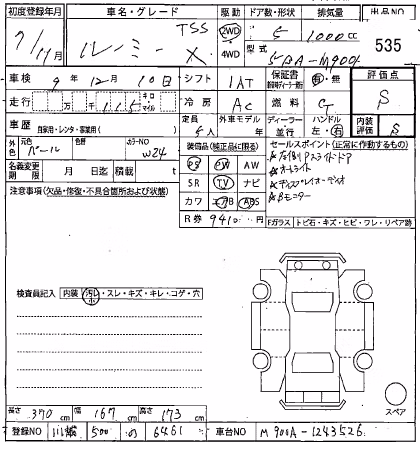 初度登録年月 車名・グレード 駆動 ドア数・形状 排気量 出品NO
7/11月 ルーミー X TSS 2WD 4WD 5 1000cc 535
型式 5BA-M900A
車検 9年 12月 10日 シフト IAT 保証書 有・無 評価点 S
走行 万 千 115 キロ・マイル 冷房 AC 燃料 G
車歴 自家用・レンタ・事業用( ) 定員 5人 外車モデル ディーラー 並行 ハンドル 左 右 内装評価 S
外色 元色 パール 色替 カラーNO W24 装備品(純正品に限る) セールスポイント(正常に作動するもの)
PS PW AW
名義変更期限 月 日迄 積載 t SR TV ナビ
注意事項(欠品・修復・不具合箇所および状態) カワ エアB ABS
R券 9410 Fガラス トビ石・キズ・ヒビ・ワレ・リペア跡
☆左側Pスライドドア
☆オートライト
☆ディスプレイオーディオ
☆Bモニター
検査員記入 内装 汚レ・スレ・キズ・キレ・コゲ・穴
小
スペア
長さ 370cm 幅 167cm 高さ 173cm
登録NO 川越 500 の 6461 車台NO M900A-1243526